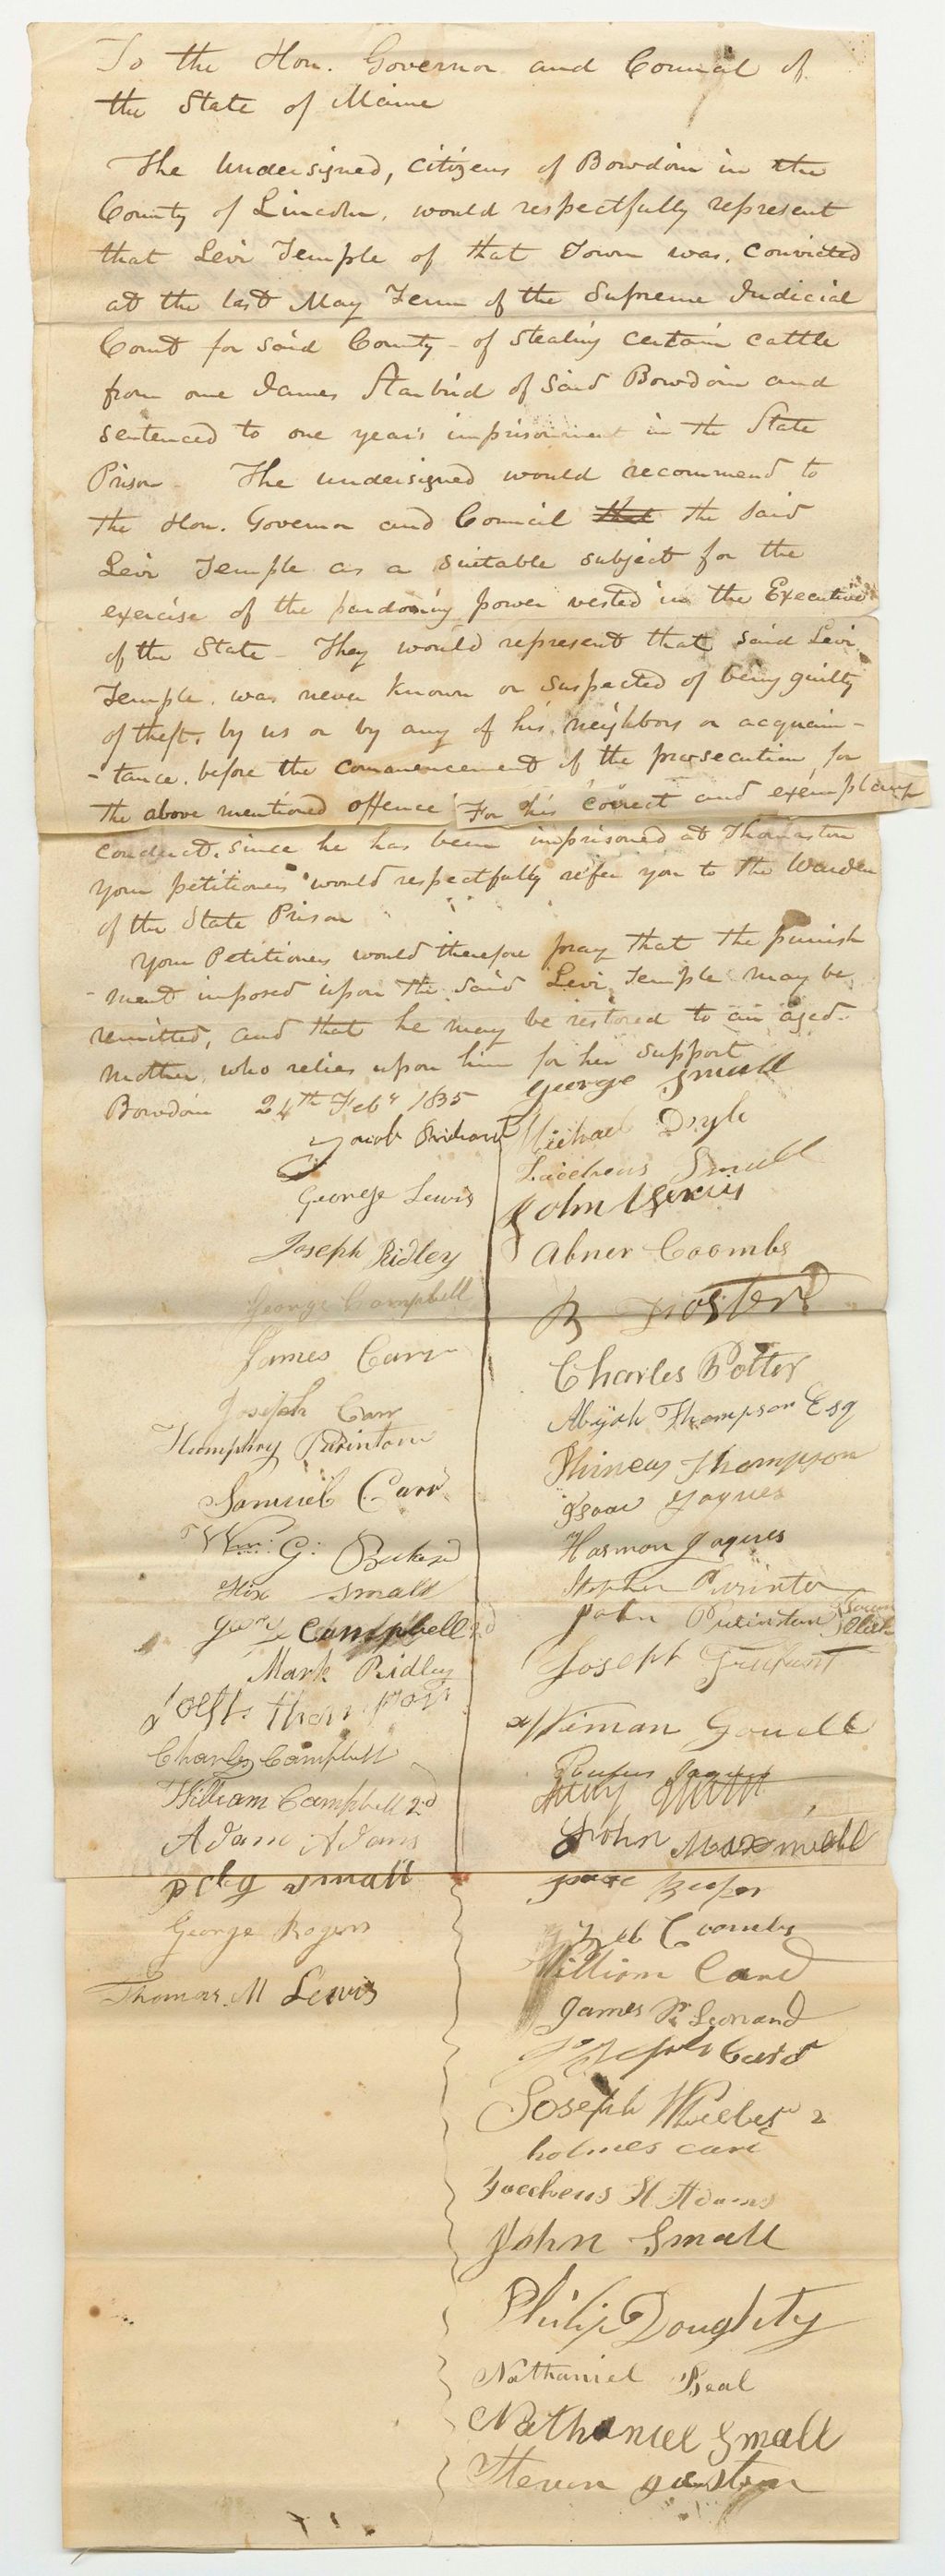 To the Hon. Governor and Council of
the State of Maine
The Undersigned, Citizens of Bowdoin in the
County of Lincoln, would respectfully represent
that Levi Temple of that Town was, Convicted
at the last May Term of the Supreme Judicial
Court for said County - of stealing certain cattle
from one James Starbird of said Bowdoin and
sentenced to one year's imprisonment in the State
Prison - The undersigned would recommend to
the Hon. Governor and Council that the said
Levi Temple as a suitable subject for the
exercise of the pardoning power vested in the Executive
of the State - They would represent that said Levi
Temple, was never known or suspected of being guilty
of theft, by us or by any of his neighbors or acquain-
-tance, before the commencement of the prosecution, for
the above mentioned offence For his correct and exemplary
conduct, since he has been imprisoned at Thomaston
your petitioners would respectfully refer you to the Warden
of the State Prison
Your Petitioners would therefore pray that the punish
-ment imposed upon the said Levi Temple may be
remitted, and that he may be restored to an aged
mother, who relies upon him for her support
Bowdoin 24th Feby 1835
Jacob
George Lewis
Joseph Ridley
George Campbell
James Carr
Joseph Carr
Humphrey Purinton
Samuel Carr
Wm: G:
Hix Small
Campbell 2d
Mark Ridley
Charles Campbell
William Campbell 2d
Adam Adams
Small
George Rogers
Thomas. M Lewis
George Small
Michael
Zaccheus Small
John Lewis
Abner Coombs
B Foster
Charles Potter
Abijah Thompson Esq
Phineas Thompson
Isaac Jaques
Harmon Jaques
Stephen Purinton
John Purinton
Joseph Trufant
Rufus Jaques
John Maxwell
Coombs
William Card
James Leonard
Card
Joseph 2
holmes card
Zaccheus H Adams
John Small
Philip Doughty
Nathaniel Beal
Nathaniel Small